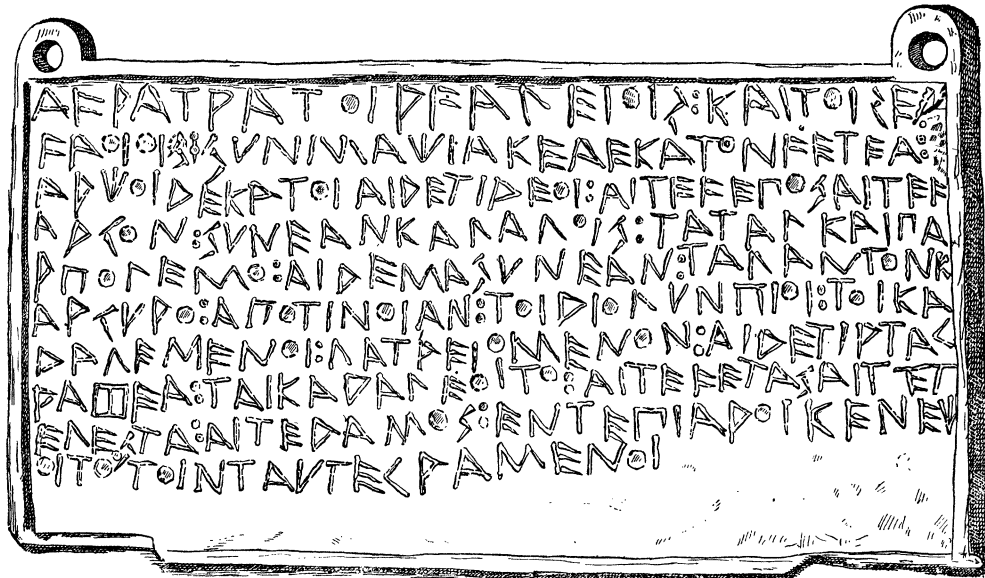 ΑϜΡΑΤΡΑΤΟΙΡϜΑΛΕΙΟΙΣ:ΚΑΙΤΟΙΣΕΡ
ϜΑΟΙΟΙΣ:ΣΥΝΜΑΧΙΑΚΕΑΕΚΑΤΟΝϜΕΤΕΑ:
ΑΡΧΟΙΔΕΚΑΤΟΙΑΙΔΕΤΙΔΕΟΙ:ΑΙΤΕϜΕΠΟΣΑΙΤΕϜ
ΑΡΓΟΝ:ΣΥΝΕΑΝΚΑΛΑΛΟΙΣ:ΤΑΤΑΛΚΑΙΠΑ
ΡΠΟΛΕΜΟ:ΑΙΔΕΜΑΣΥΝΕΑΝ:ΤΑΛΑΝΤΟΝΚ
ΑΡΓΥΡΟ:ΑΠΟΤΙΝΟΙΑΝ:ΤΟΙΔΙΟΛΥΝΠΙΟΙ:ΤΟΙΚΑ
ΔΑΛΕΜΕΝΟΙ:ΛΑΤΡΕΙΟΜΕΝΟΝ:ΑΙΔΕΤΙΡΤΑΓ
ΡΑΦΕΑ:ΤΑΙΚΑΔΑΛΕΟΙΤΟ:ΑΙΤΕϜΕΤΑΣΑΙΤΕΤ
ΕΛΕΣΤΑ:ΑΙΤΕΔΑΜΟΣ:ΕΝΤΕΠΙΑΡΟΙΚΕΝΕΧ
ΟΙΤΟΤΟΙΝΤΑΥΤΕΓΡΑΜΕΝΟΙ